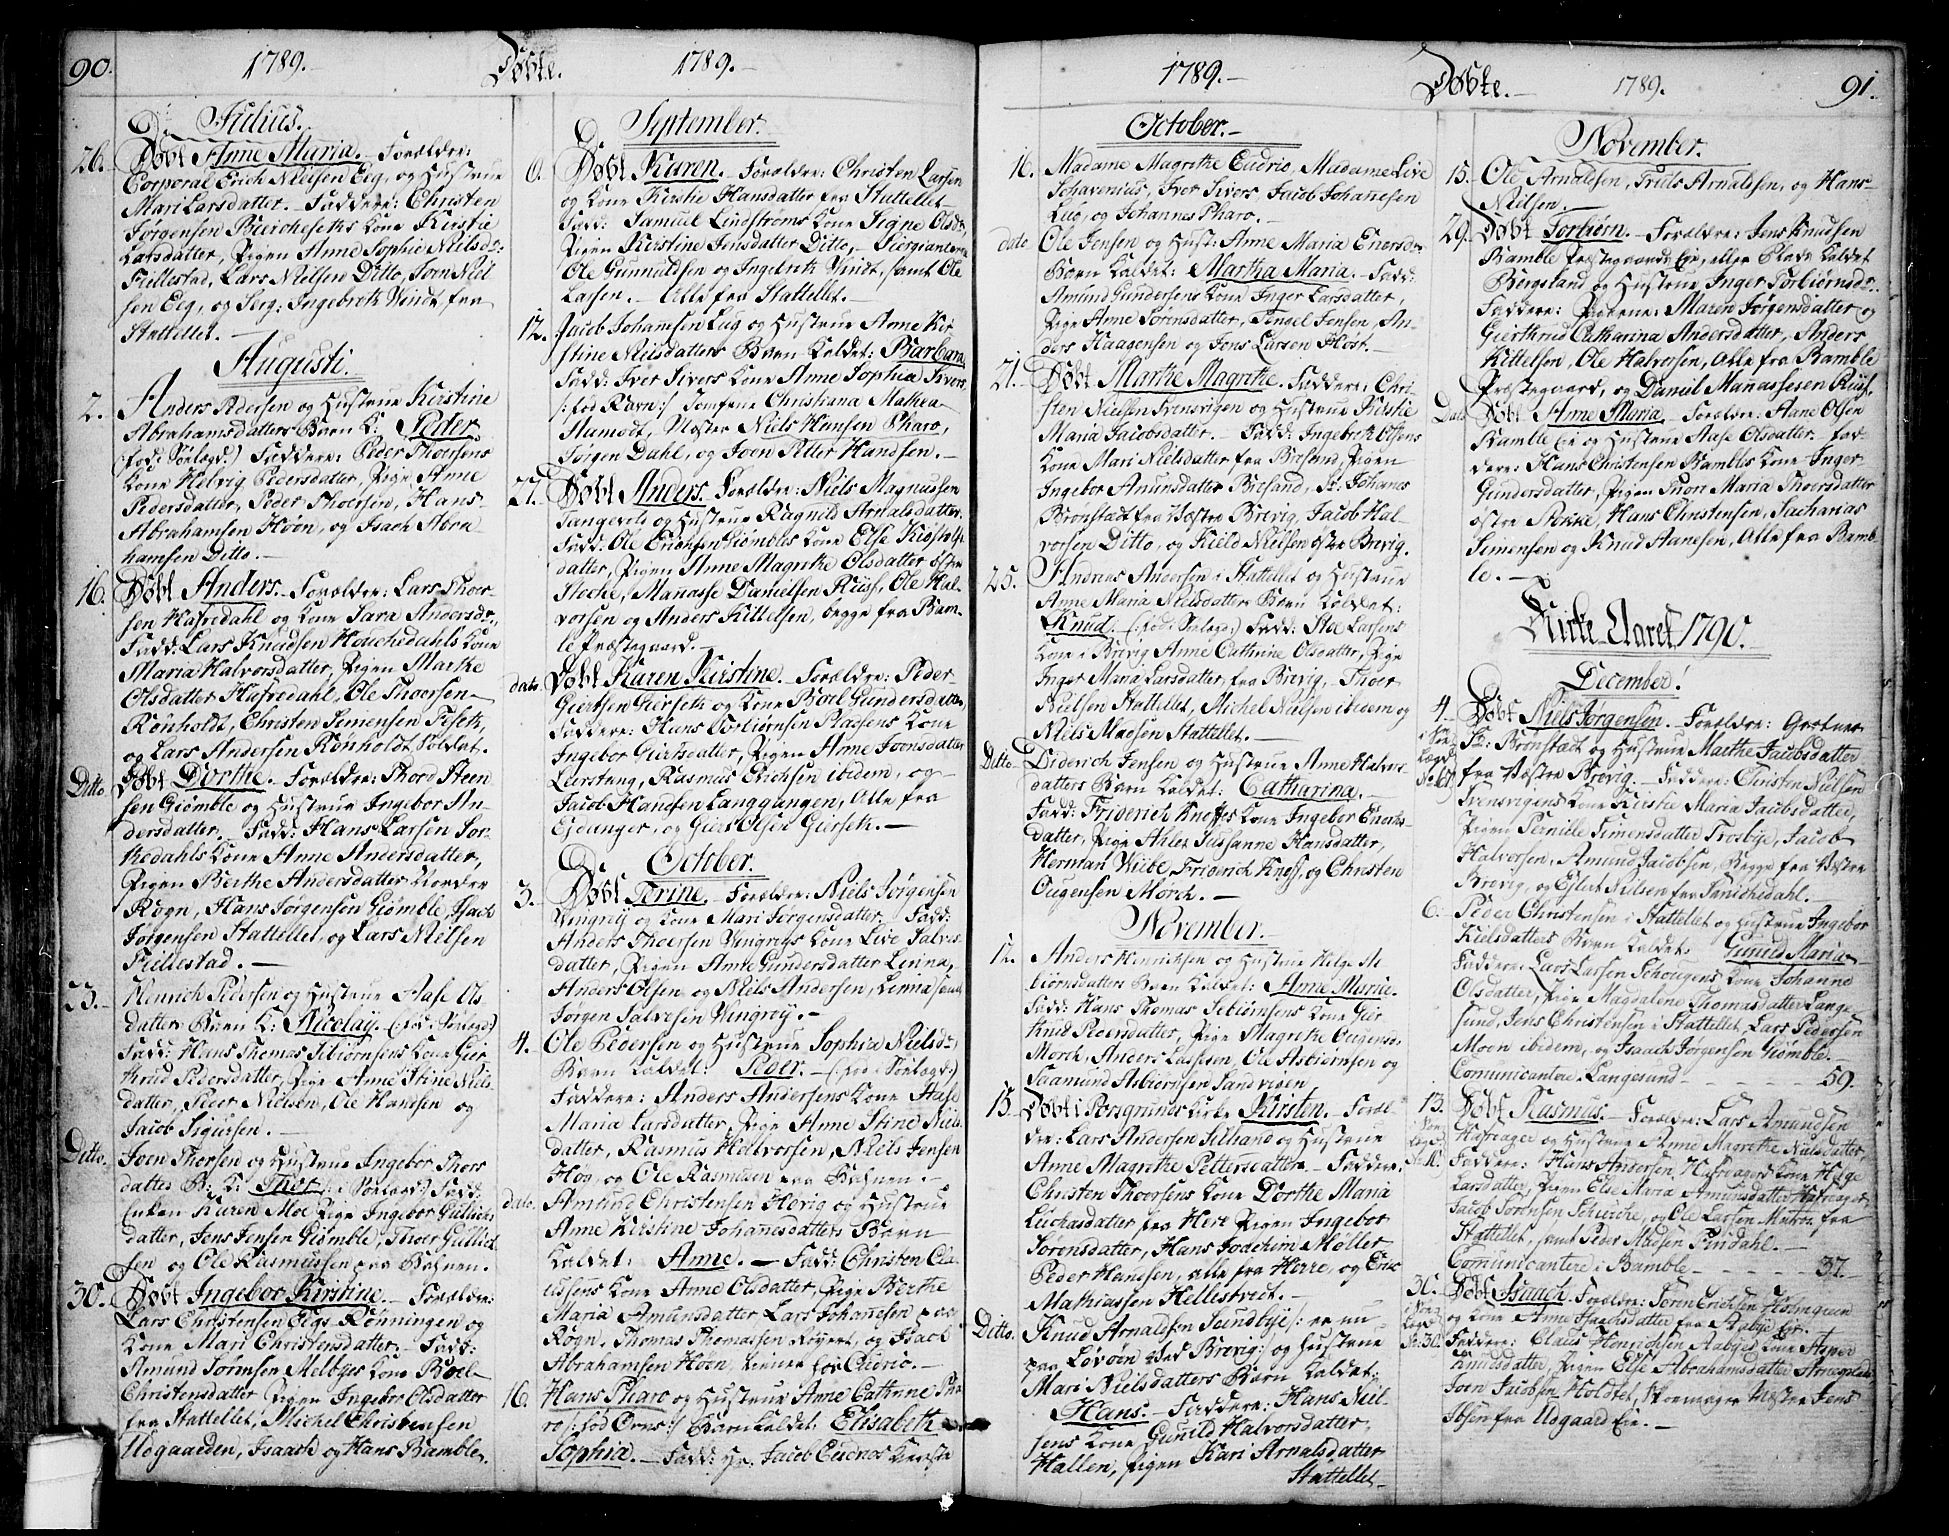 90.
1789.-
Døbte.
1789.-
Julius.
26. Døbt Anne Maria. - Forældre:
Corporal Erich Nielsen Eeg, og Hustrue
Mari Larsdatter. - Faddere: Christen
Jørgensen Bierchesets Kone Kirstie
Larsdatter, Pigen Anne Sophie Nielsdr:
Fiellestad, Lars Nielsen Ditto, Joen Niel-
sen Eeg, og Serg: Ingebreth Vindt fra
Stattellet.-
Augusti.
2. Anders Pedersen og Hustrue Kirstine
Abrahamsdatters Barn K: Peder.
(fød i Sørlægd.) Faddere: Peder Thoersens
Kone Helvig Pedersdatter, Pige Anne
Pedersdatter, Peder Thoersen, Hans
Abrahamsen Hoen, og Isach Abra
hamsen Ditto.-
16. Døbt Anders. - Forældre: Lars Thoer-
sen Hafredahl og Kone Sara Andersdr:
Fadd: Lars Knudsen Houchedahls Kone
Maria Halvorsdatter, Pigen Marthe
Olsdatter Hafredahl, Ole Thoersen
Rønholdt, Christen Simensen Teseth,
og Lars Andersen Rønholdt Soldat.
Ditto Døbt Dorthe. Forældre: Thord Steen-
sen Giømble og Hustrue Ingebor An-
dersdatter. - Fadd: Hans Larsen Tor-
kedahls Kone Anne Andersdatter,
Pigen Berthe Andersdatter Nordre
Rogn, Hans Jørgensen Giømble, Isach
Jørgensen Stattellet, og Lars Nielsen
Fiellestad.-
23. Henrich Pedersen og Hustrue Aase Ols
datters Barn K: Nicolay. (fød i Sørlægd:)
Fadd: Hans Thomas Sebiørnsens Kone Gier
thrud Pedersdatter, Pige Anne Stine Niels-
datter, Peder Nielsen, Ole Hansen og
Jacob Sigursen.-
Ditto. Joen Thorsen og Hustrue Ingebor Thors
datters B: K: Thor (i Sørlægd:) Fadd:
Enken Karen Moe Pige Ingebor Gullich
datter, Jens Jensen Giømble, Thoer Gullich
sen og Ole Rasmussen paa Bahnen.
30. Døbt Ingebor Kirstine. - Forældre:
Lars Christensen Eegs Rønningen og
Kone Mari Christensdatter. - Fadd:
Amund Sørensen Melbyes Kone Boel
Christensdatter Pigen Ingebor Olsdatter
fra Stattellet, Michel Christensen
Udgaarden, Isaach og Hans Bamble.
September.
6. Døbt Karen. - Forældre: Christen Larsen
og Kone Kirstie Hansdatter fra Stattellet
Fadd: Samuel Lindstrøms Kone Signe Olsdr,
Pigen Kirstine Jensdatter Ditto, - Siergianterne
Ole Gunnuldsen og Ingebreth Vindt, samt Ole
Larsen. - Alle fra Stattellet.-
12. Jacob Johansen Lug og Hustrue Anne Kir
stine Nielsdatters Barn Kaldet: Barbara
Fadd: Iver Sivers Kone Anne Sophia Sivers
/: fød Ravn :/ Jomfrue Christiana Mathea
Aamodt, Mester Niels Hansen Pharo,
Jørgen Dahl, og Joen Petter Handsen.-
27. Døbt Anders. Forældre: Niels Magnussen
Tangevald og Hustrue Ragnild Arnalsdatter.
Fadd: Ole Evensen Giømbles Kone Else Kiøstolfs
datter, Pigen Anne Magrethe Olsdatter østre
Stoche, Manasse Danielsen Riis, Ole Hal
vorsen og Anders Kittelsen, begge fra Bam-
le Præstegaard.-
dato. Døbt Karen Kirstine. - Forældre: Peder
Giertsen Gierseth og Kone Boel Gundersdatter,
Faddere: Hans Torbiørnsen Raasens Kone
Ingebor Giertsdatter, Pigen Anne Joensdatter
Lerstang, Rasmus Erichsen ibidem, og
Jacob Handsen Langgangen, Alle fra
Ejdanger, og Giert Olsen Gierseth.-
October.
3. Døbt Terine. - Forældre: Niels Jørgensen
Vingrøy og Kone Mari Jørgensdatter. Fadd:
Anders Thoersen Vingrøys Kone Live Salves
datter, Pigen Anne Gundersdatter Linna,
Anders Olsen og Niels Andersen, Linna samt
Jørgen Salvesen Vingrøy.-
4. Ole Pedersen og Hustrue Sophia Nielsdr:
Barn Kaldet: Peder. - (fød i Sørlægd:)
Faddere: Anders Andersens Kone Aase
Maria Larsdatter, Pige Anne Stine Niels
datter, Rasmus Helvorsen, Niels Jensen
Hog og Ole Rasmusen paa Bahnen.-
dato. Amund Christensen Herrig og Hustrue
Anne Kirstine Johannesdatters Barn
Kaldet: Anne. - Fadd: Christen Cla-
ussens Kone Anne Olsdatter, Pige Berthe
Maria Amundsdatter Lars Johannesen paa
Rogn, Thomas Thomassen Røyert, og Isach
Abrahamsen Hoen,
16. Hans Pharo og Hustrue Anne Cathrine Pha
ro /: fød Orns :/ Barn Kaldet: Elisabeth
Sophia. - Fadd: Hr. Jacob Eudrios Kiereste
1789.-
Døbte.-
1789.
91.
October.-
16. Madame Magrethe Eudrio, Madame Live
Schavenius, Iver Sivers Jacob Johannesen
Lug, og Johannes Pharo.-
dato Ole Jensen og Hust: Anne Maria Enersdr
Barn Kaldet: Martha Maria. - Fadd:
Amund Gundersens Kone Inger Larsdatter,
Pige Anne Sørensdatter, Tengel Jensen, An-
ders Haagensen og Jens Larsen Høst.-
21. Døbt Marthe Magrethe. Faddere: Chri-
sten Nielsen Trensvigen og Hustrue Kirstie
Maria Jacobsdatter. - Fadd: Ingebreth Olsens
Kone Mari Nielsdatter fra Biesand, Pigen
Ingebor Amunsdatter Biesand, Sr: Johanes
Brønstad fra Vestre Brevig, Jacob Hal-
vorsen Ditto, og Kield Nielsen østre Brevig.
25. Andreas Andersen i Stattellet og Hustrue
Anne Maria Nielsdatters Barn Kaldet:
Knud. (fød i Sørlægd:) Fadd: Staa Larsens
Kone i Brevig Anne Cathrine Olsdatter, Pige
Inger Maria Larsdatter, fra Brevig, - Thoer
Nielsen Stattellet, Michel Nielsen ibidem og
Niels Madsen Stattellet.-
Ditto Diderich Jensen og Hustrue Anne Halvers-
datters Barn Kaldet: Catharina.-
Fadd: Friderich Knoffs Kone Ingebor Eners-
datter, Pige Ahlet Susanne Hansdatter,
Herman Wiibe, Friderich Knoff, og Christen
Ougensen Morch.-
November.-
12. Anders Hinrichsen og Hustrue Helge As-
biørnsdatters Barn Kaldet: Anne Marie.
Fadd: Hans Thomas Sebiørnsens Kone Gier
thrud Pedersdatter, Pige Magrethe Ougensdr
Morch, Anders Lassesen, Ole Asbiørnsen og
Saamund Asbiørnsen Sandvigen
15. Døbt i Porsgrunds Kirke Kirsten. - Foræl-
dre: Lars Andersen Sillsand og Hustrue
Anne Magrethe Pettersdatter. - Faddere:
Christen Thoersens Kone Dorthe Maria
Luchasdatter fra Herre Pigen Ingebor
Sørensdatter, Hans Joachim Møller
Peder Hansen, alle fra Herre, og Eric
Mathiassen Hellestvedt.-
Ditto. Knud Arnaldsen Sundbye /: er nu
paa Løvøen ved Brevig :/ og Hustrue
Mari Nielsdatters Barn Kaldet:
Hans. - Faddere: Hans Niel-
sens Kone Gunild Halvorsdatter,
Hallen, Pigen Kari Arnalsdatter
Stattellet-
November.
15. Ole Arnaldsen, Truls Arnaldsen, og Hans
Nielsen.-
29. Døbt Torbiørn. - Forældre: Jens Knudsen
Bamble Præstegaards Eie, eller Plads Kaldet
Bergsland og Hustrue Inger Torbiørnsdr.
Faddere: Pigerne: Maren Jørgensdatter og
Gierthrud Catharina Andersdatter, Anders
Kittelsen, Ole Halvorsen, Alle fra Bamble
Præstegaard, og Daniel Manassesen Riis.
Dato Døbt Anne Maria. - Forældre: Aane Olsen
Bamble Eie og Hustrue Aase Olsdatter. - Fad-
dere: Hans Christensen Bambles Kone Inger
Gundersdatter, Pigen Tuore Maria Thoersdatter
østre Stokke, Hans Christensen, Zacharias
Simensen og Knud Aanesen, Alle fra Bamb-
le.-
Kirke Aaret 1790.-
December.
4. Døbt Niels Jørgensen. - Forældre: Giørtner
Sr: Brønstadt og Hustrue Marthe Jacobsdatter
fra Vestre Brevig. - Faddere: Christen Nielsen
Trensvigens Kone Kirstie Maria Jacobsdatter,
Pigen Pernille Simensdatter Trosbye, Jacob
Halvorsen, Amund Jacobsen, Begge fra Vestre
Brevig, og Eylert Nielsen fra Tønichedahl.-
6. Peder Christensen i Stattellet og Hustrue Ingebor
Nielsdatters Barn Kaldet: Gunild Maria
Faddere: Lars Larsen Schougens Kone Johanne
Olsdatter, Pige Magdalene Thomasdatter Lange
sund, Jens Christensen i Stattellet, Lars Pedersen
Moen ibidem, og Isaach Jørgensen Giømble.-
Comunicantere. Langesund - - - - 59.
13. Døbt Rasmus. - Forældre: Lars Amundsen
Hafsager og Hustrue Anne Magrethe Nielsdatter,
Faddere: Hans Andersen Hafsagers Kone Helge
Larsdatter, Pigen Else Maria Amunsdatter Hafsager,
Jacob Sørensen Schierche, og Ole Larsen fra
Stattellet, samt Peder Madsen Findahl.-
Comunicantere i Bamble - - - - 37.-
30. Døbt Isaach. Forældre: Søren Erichsen Holmgreen
og Kone Anne Isachsdatter fra Aabye Eie.
Faddere: Claus Henrichsen Aabyes Kone Asper
Knudsdatter, Pigen Else Abrahamsdatter
Joen Jacobsen Holdtet, Skomager Mester Jens
Ibsen fra Udgaard Eie.-